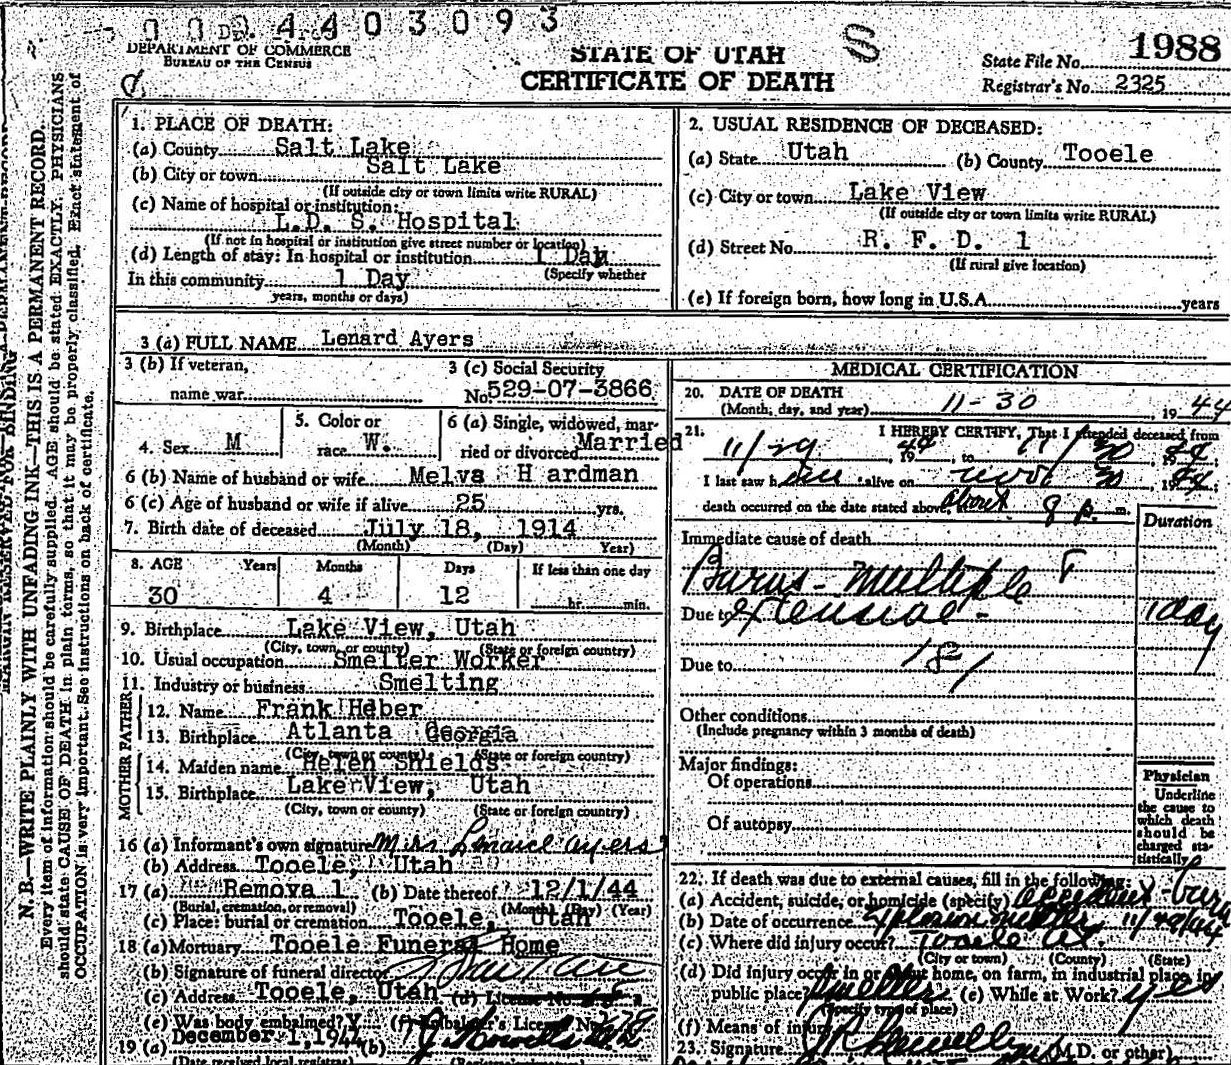 4403093
DEPARTMENT OF COMMERCE
BUREAU OF THE CENSUS
STATE OF UTAH
CERTIFICATE OF DEATH
State File No. 1988
Registrar's No. 2325
N. B.—WRITE PLAINLY WITH UNFADING INK—THIS IS A PERMANENT RECORD.
Every item of information should be carefully supplied. AGE should be stated EXACTLY. PHYSICIANS
should state CAUSE OF DEATH in plain terms, so that it may be properly classified. Exact statement of
OCCUPATION is very important. See instructions on back of certificate.
1. PLACE OF DEATH:
(a) County Salt Lake
(b) City or town Salt Lake
(If outside city or town limits write RURAL)
(c) Name of hospital or institution:
L.D. S. Hospital
(If not in hospital or institution give street number or location)
(d) Length of stay: In hospital or institution 1 Day
(Specify whether
In this community 1 Day
years, months or days)
2. USUAL RESIDENCE OF DECEASED:
(a) State Utah (b) County Tooele
(c) City or town Lake View
(If outside city or town limits write RURAL)
(d) Street No. R. F. D. 1
(If rural give location)
(e) If foreign born, how long in U.S.A. years
3 (a) FULL NAME Lenard Ayers
3 (b) If veteran,
name war
3 (c) Social Security
No. 529-07-3866
4. Sex M
5. Color or
race W.
6 (a) Single, widowed, mar-
ried or divorced Married
6 (b) Name of husband or wife Melva H ardman
6 (c) Age of husband or wife if alive 25 yrs.
7. Birth date of deceased July 18, 1914
(Month) (Day) Year)
8. AGE Years Months Days If less than one day
30 4 12 hr. min.
9. Birthplace Lake View, Utah
(City, town, or county) (State or foreign country)
10. Usual occupation Smelter Worker
11. Industry or business Smelting
FATHER
12. Name Frank Heber
13. Birthplace Atlanta Georgia
(City, town or county) (State or foreign country)
MOTHER
14. Maiden name Helen Shields
15. Birthplace Lake View, Utah
(City, town or county) (State or foreign country)
16 (a) Informant's own signature Mrs Lenard Ayers
(b) Address Tooele, Utah
17 (a) Remova l (b) Date thereof 12/1/44
(Burial, cremation, or removal) (Month) (Day) (Year)
(c) Place: burial or cremation Tooele, Utah
18 (a) Mortuary Tooele Funeral Home
(b) Signature of funeral director
(c) Address Tooele, Utah (d) License No
(e) Was body embalmed? Y (f) Embalmer's License No.
19 (a) December 1, 1944 (b)
(Date received local registrar)
MEDICAL CERTIFICATION
20. DATE OF DEATH
(Month, day, and year) 11-30, 1944
21. I HEREBY CERTIFY, That I attended deceased from
11/29, 1944, to 11/30, 1944
I last saw him alive on Nov 30, 1944
death occurred on the date stated above, about 8 p. m.
Duration
Immediate cause of death
Burns - multiple &
Due to extensive - 1 day
181
Due to
Other conditions
(Include pregnancy within 3 months of death)
Major findings:
Of operations
Of autopsy
Physician
Underline
the cause to
which death
should be
charged sta-
tistically
22. If death was due to external causes, fill in the following:
(a) Accident, suicide, or homicide (specify) Accident - burn
(b) Date of occurrence Explosion smelter 11/29/44
(c) Where did injury occur? Tooele Ut.
(City or town) (County) (State)
(d) Did injury occur in or about home, on farm, in industrial place, in
public place? Smelter (e) While at Work? yes
(Specify type of place)
(f) Means of injury
23. Signature (M.D. or other)